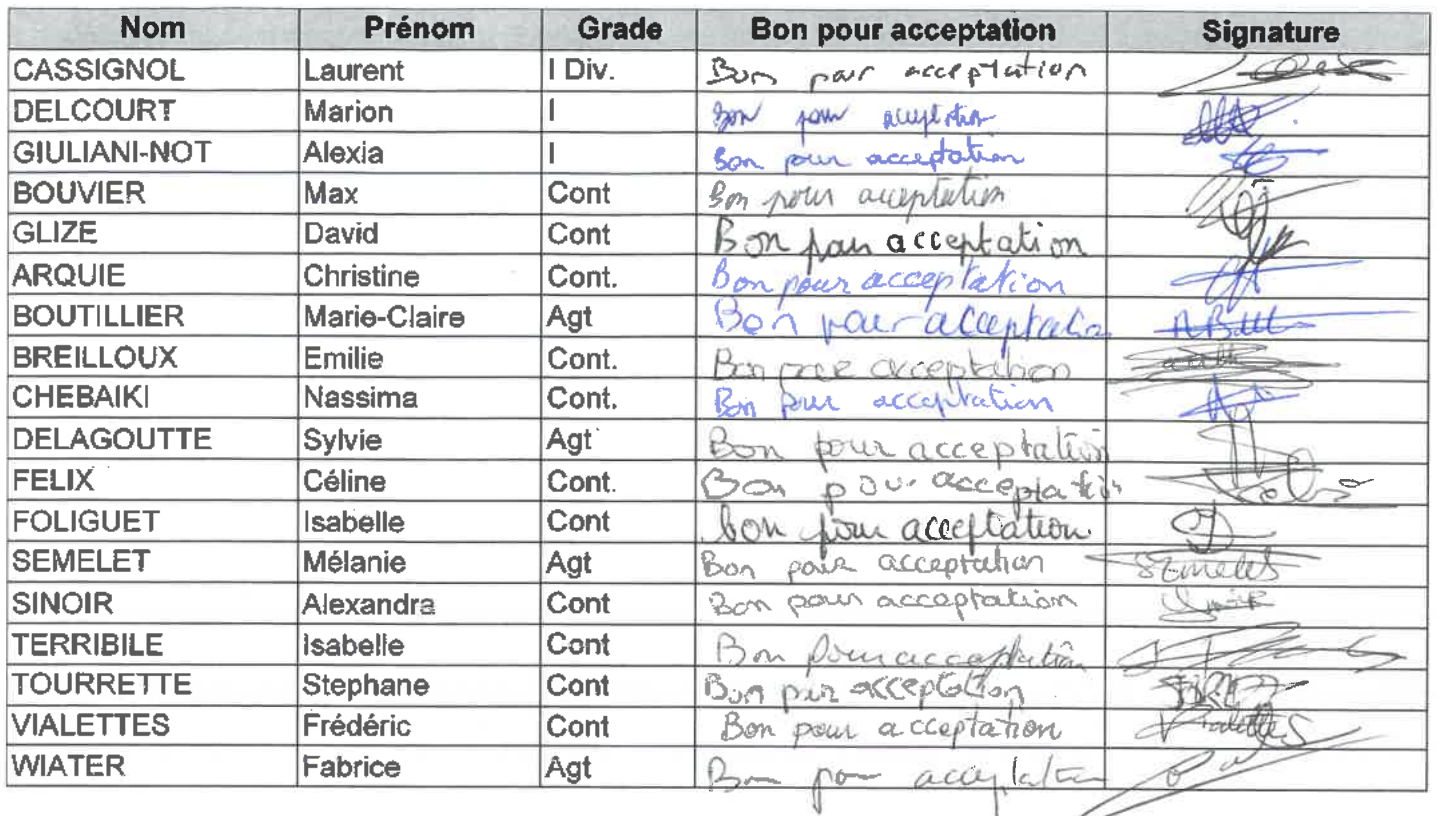 Nom Prénom Grade Bon pour acceptation Signature
CASSIGNOL Laurent I Div. Bon pour acceptation
DELCOURT Marion I Bon pour acceptation
GIULIANI-NOT Alexia I Bon pour acceptation
BOUVIER Max Cont Bon pour acceptation
GLIZE David Cont Bon pour acceptation
ARQUIE Christine Cont. Bon pour acceptation
BOUTILLIER Marie-Claire Agt Bon pour acceptation
BREILLOUX Emilie Cont. Bon pour acceptation
CHEBAIKI Nassima Cont. Bon pour acceptation
DELAGOUTTE Sylvie Agt Bon pour acceptation
FELIX Céline Cont. Bon pour acceptation
FOLIGUET Isabelle Cont bon pour acceptation
SEMELET Mélanie Agt Bon pour acceptation Semelet
SINOIR Alexandra Cont Bon pour acceptation
TERRIBILE Isabelle Cont Bon pour acceptation
TOURRETTE Stephane Cont Bon pour acceptation
VIALETTES Frédéric Cont Bon pour acceptation Vialettes
WIATER Fabrice Agt Bon pour acceptation